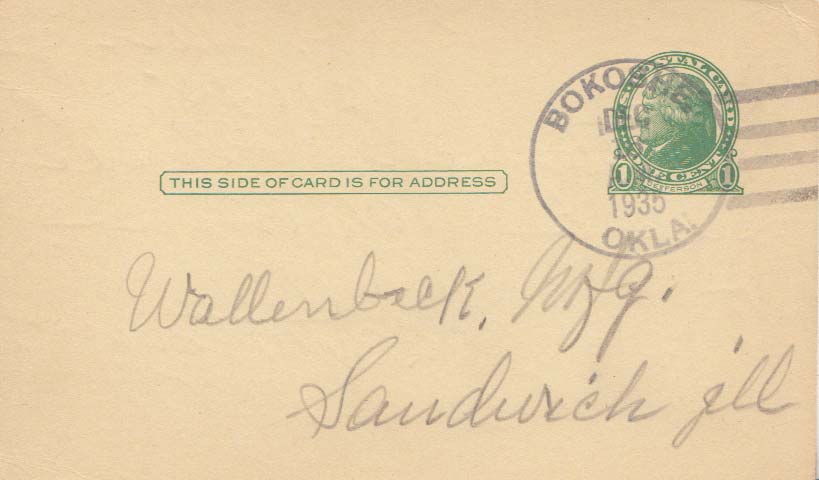 U.S. POSTAL CARD
ONE CENT
1 JEFFERSON 1
BOKOSHE
DEC
1935
OKLA.
THIS SIDE OF CARD IS FOR ADDRESS
Wallenback, Mfg.
Sandwich Ill